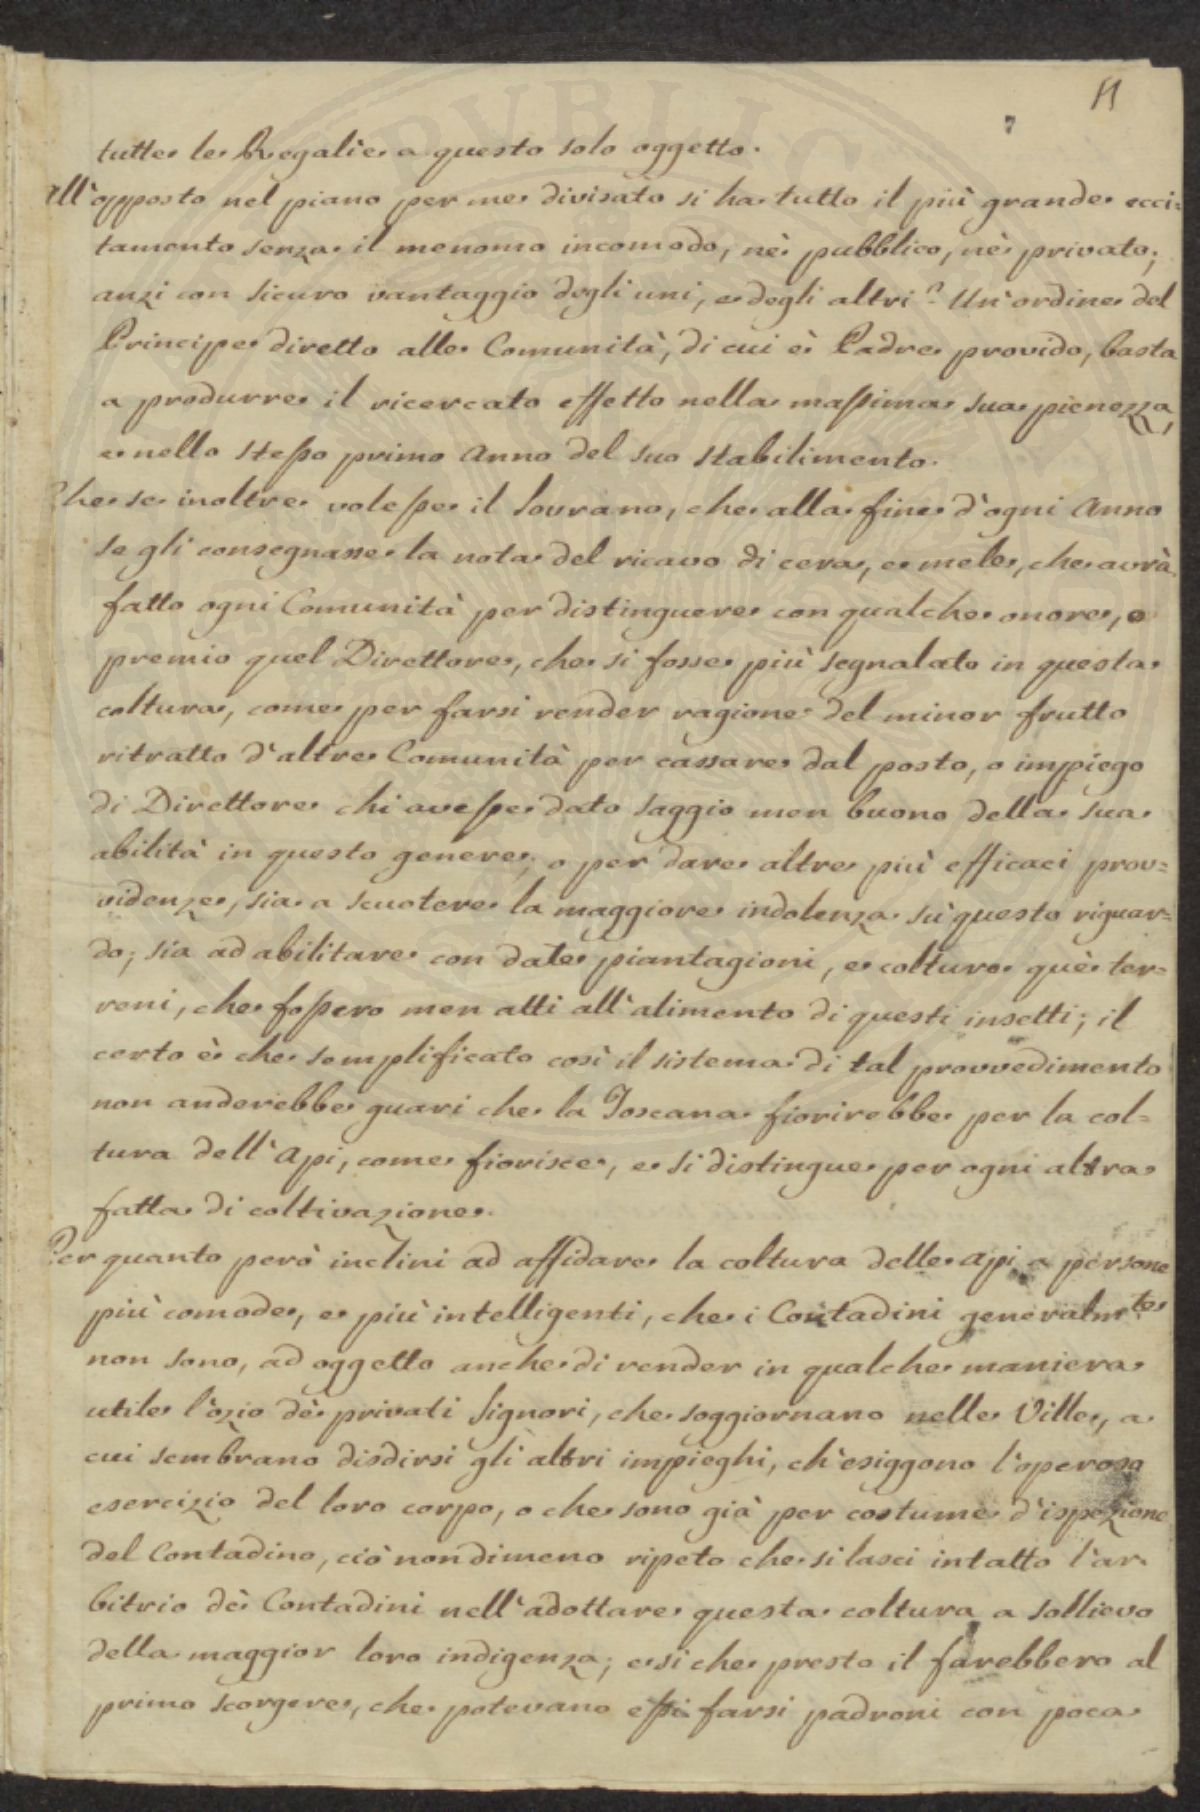 11
7
tutte le Regalìe a questo solo oggetto.
All'opposto nel piano per me divisato si ha tutto il più grande ecci=
tamento senza il menomo incomodo, nè pubblico, nè privato;
anzi con sicuro vantaggio degli uni, e degli altri. Un'ordine del
Principe diretto alle Comunità, di cui è Padre provido, basta
a produrre il ricercato effetto nella massima sua pienezza,
e nello stesso primo Anno del suo stabilimento.
Che se inoltre volesse il Sovrano, che alla fine d'ogni Anno
se gli consegnasse la nota del ricavo di cera, e mele, che avrà
fatto ogni Comunità per distinguere con qualche onore, o
premio quel Direttore, che si fosse più segnalato in questa
coltura, come per farsi render ragione del minor frutto
ritratto d'altre Comunità per cassare dal posto, o impiego
di Direttore chi avesse dato saggio men buono della sua
abilità in questo genere; o per dare altre più efficaci prov=
videnze, sia a scuotere la maggiore indolenza sù questo riguar=
do; sia ad abilitare con date piantagioni, e colture què ter=
reni, che fossero men atti all'alimento di questi insetti; il
certo è che semplificato così il sistema di tal provvedimento
non anderebbe guari che la Toscana fiorirebbe per la col=
tura dell'Api, come fiorisce, e si distingue per ogni altra
fatta di coltivazione.
Per quanto però inclini ad affidare la coltura delle Api a persone
più comode, e più intelligenti, che i Contadini generalmte
non sono, ad oggetto anche di render in qualche maniera
utile l'ozio dè privati Signori, che soggiornano nelle Ville, a
cui sembrano disdirsi gli altri impieghi, ch'esiggono l'operoso
esercizio del loro corpo, o che sono già per costume d'ispezione
del Contadino, ciò nondimeno ripeto che si lasci intatto l'ar=
bitrio dè Contadini nell'adottare questa coltura a sollievo
della maggior loro indigenza; e sì che presto il farebbero al
primo scorgere, che potevano essi farsi padroni con poca